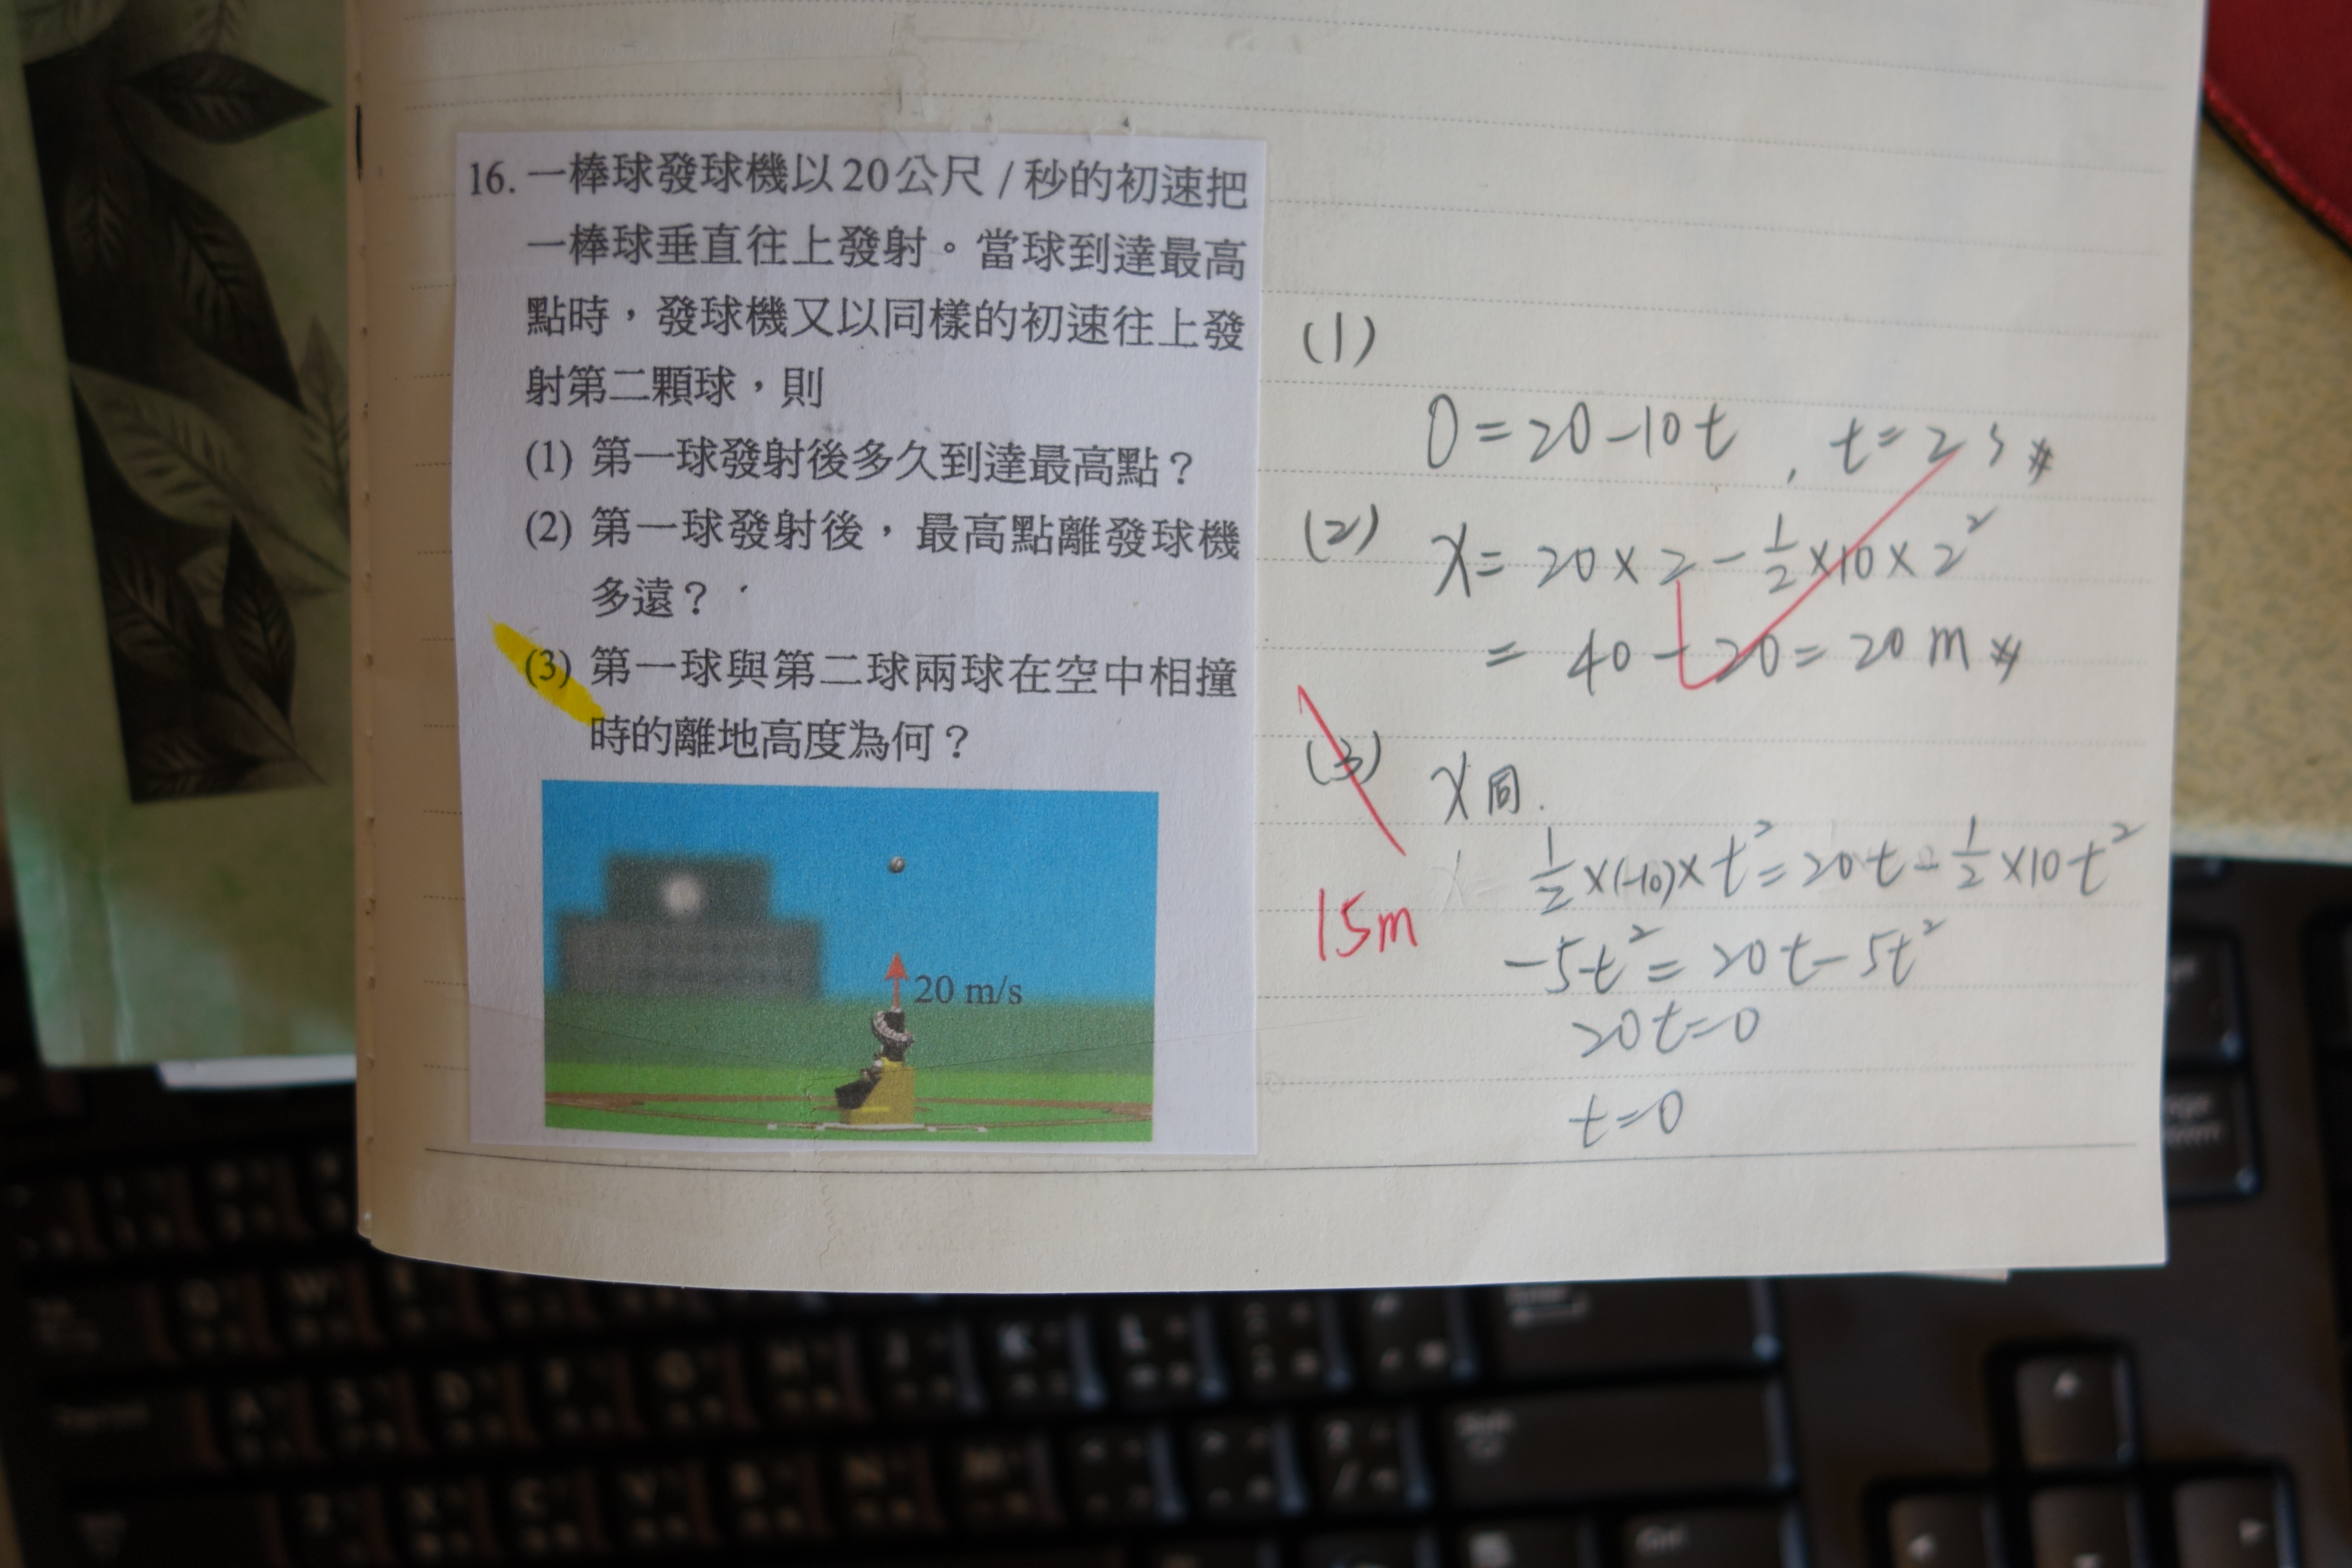 16. 一棒球發球機以20公尺/秒的初速把
一棒球垂直往上發射。當球到達最高
點時，發球機又以同樣的初速往上發
射第二顆球，則
(1) 第一球發射後多久到達最高點？
(2) 第一球發射後，最高點離發球機
多遠？
(3) 第一球與第二球兩球在空中相撞
時的離地高度為何？
20 m/s
(1)
0=20-10t , t=2s
(2) x= 20×2-½×10×2²
= 40-20=20m
(3) x同.
½×(-10)×t²=20t-½×10t²
15m
-5t²=20t-5t²
20t=0
t=0